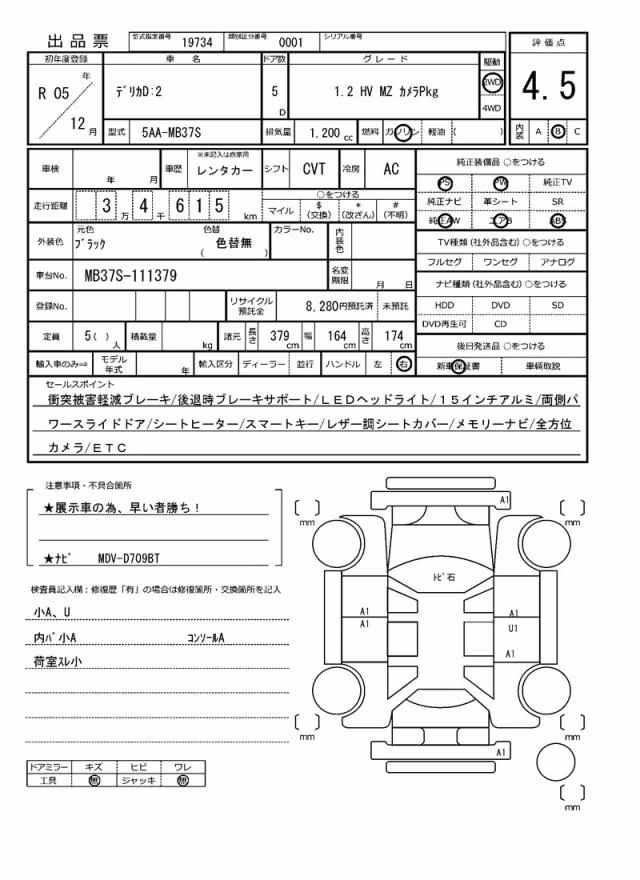 出品票
型式指定番号 19734 類別区分番号 0001 シリアル番号
初年度登録 車名 ドア数 グレード 駆動 評価点
R 05 年 12 月
デリカD:2 5 D 1.2 HV MZ カメラPkg 2WD 4WD
4.5
型式 5AA-MB37S 排気量 1.200 cc 燃料 ガソリン 軽油 ( ) 内装 A B C
車検 年 月 車歴 ※未記入は自家用 レンタカー シフト CVT 冷房 AC
純正装備品 ○をつける
PS PW 純正TV
純正ナビ 革シート SR
純正AW エアB ABS
走行距離 3 万 4 6 1 5 km
○をつける
マイル $ (交換) * (改ざん) # (不明)
外装色 元色 ブラック 色替 ( 色替無 ) カラーNo. 内装色
TV種類 (社外品含む) ○をつける
フルセグ ワンセグ アナログ
車台No. MB37S-111379 名変期限 月 日
ナビ種類 (社外品含む) ○をつける
HDD DVD SD
DVD再生可 CD
登録No. リサイクル預託金 8,280円預託済 未預託
定員 5( ) 人 積載量 kg 諸元 長さ 379 cm 幅 164 cm 高さ 174 cm
後日発送品 ○をつける
新車保証書 車輌取説
輸入車のみ⇒ モデル年式 年 輸入区分 ディーラー 並行 ハンドル 左 右
セールスポイント
衝突被害軽減ブレーキ/後退時ブレーキサポート/LEDヘッドライト/15インチアルミ/両側パ
ワースライドドア/シートヒーター/スマートキー/レザー調シートカバー/メモリーナビ/全方位
カメラ/ETC
注意事項・不具合箇所
★展示車の為、早い者勝ち!
★ナビ MDV-D709BT
検査員記入欄:修復歴「有」の場合は修復箇所・交換箇所を記入
小A、U
内バ小A コンソールA
荷室スレ小
ドアミラー キズ ヒビ ワレ
工具 無 ジャッキ 無
A1
mm mm
トビ石
A1 A1
A1 U1
A1
mm mm
A1
mm